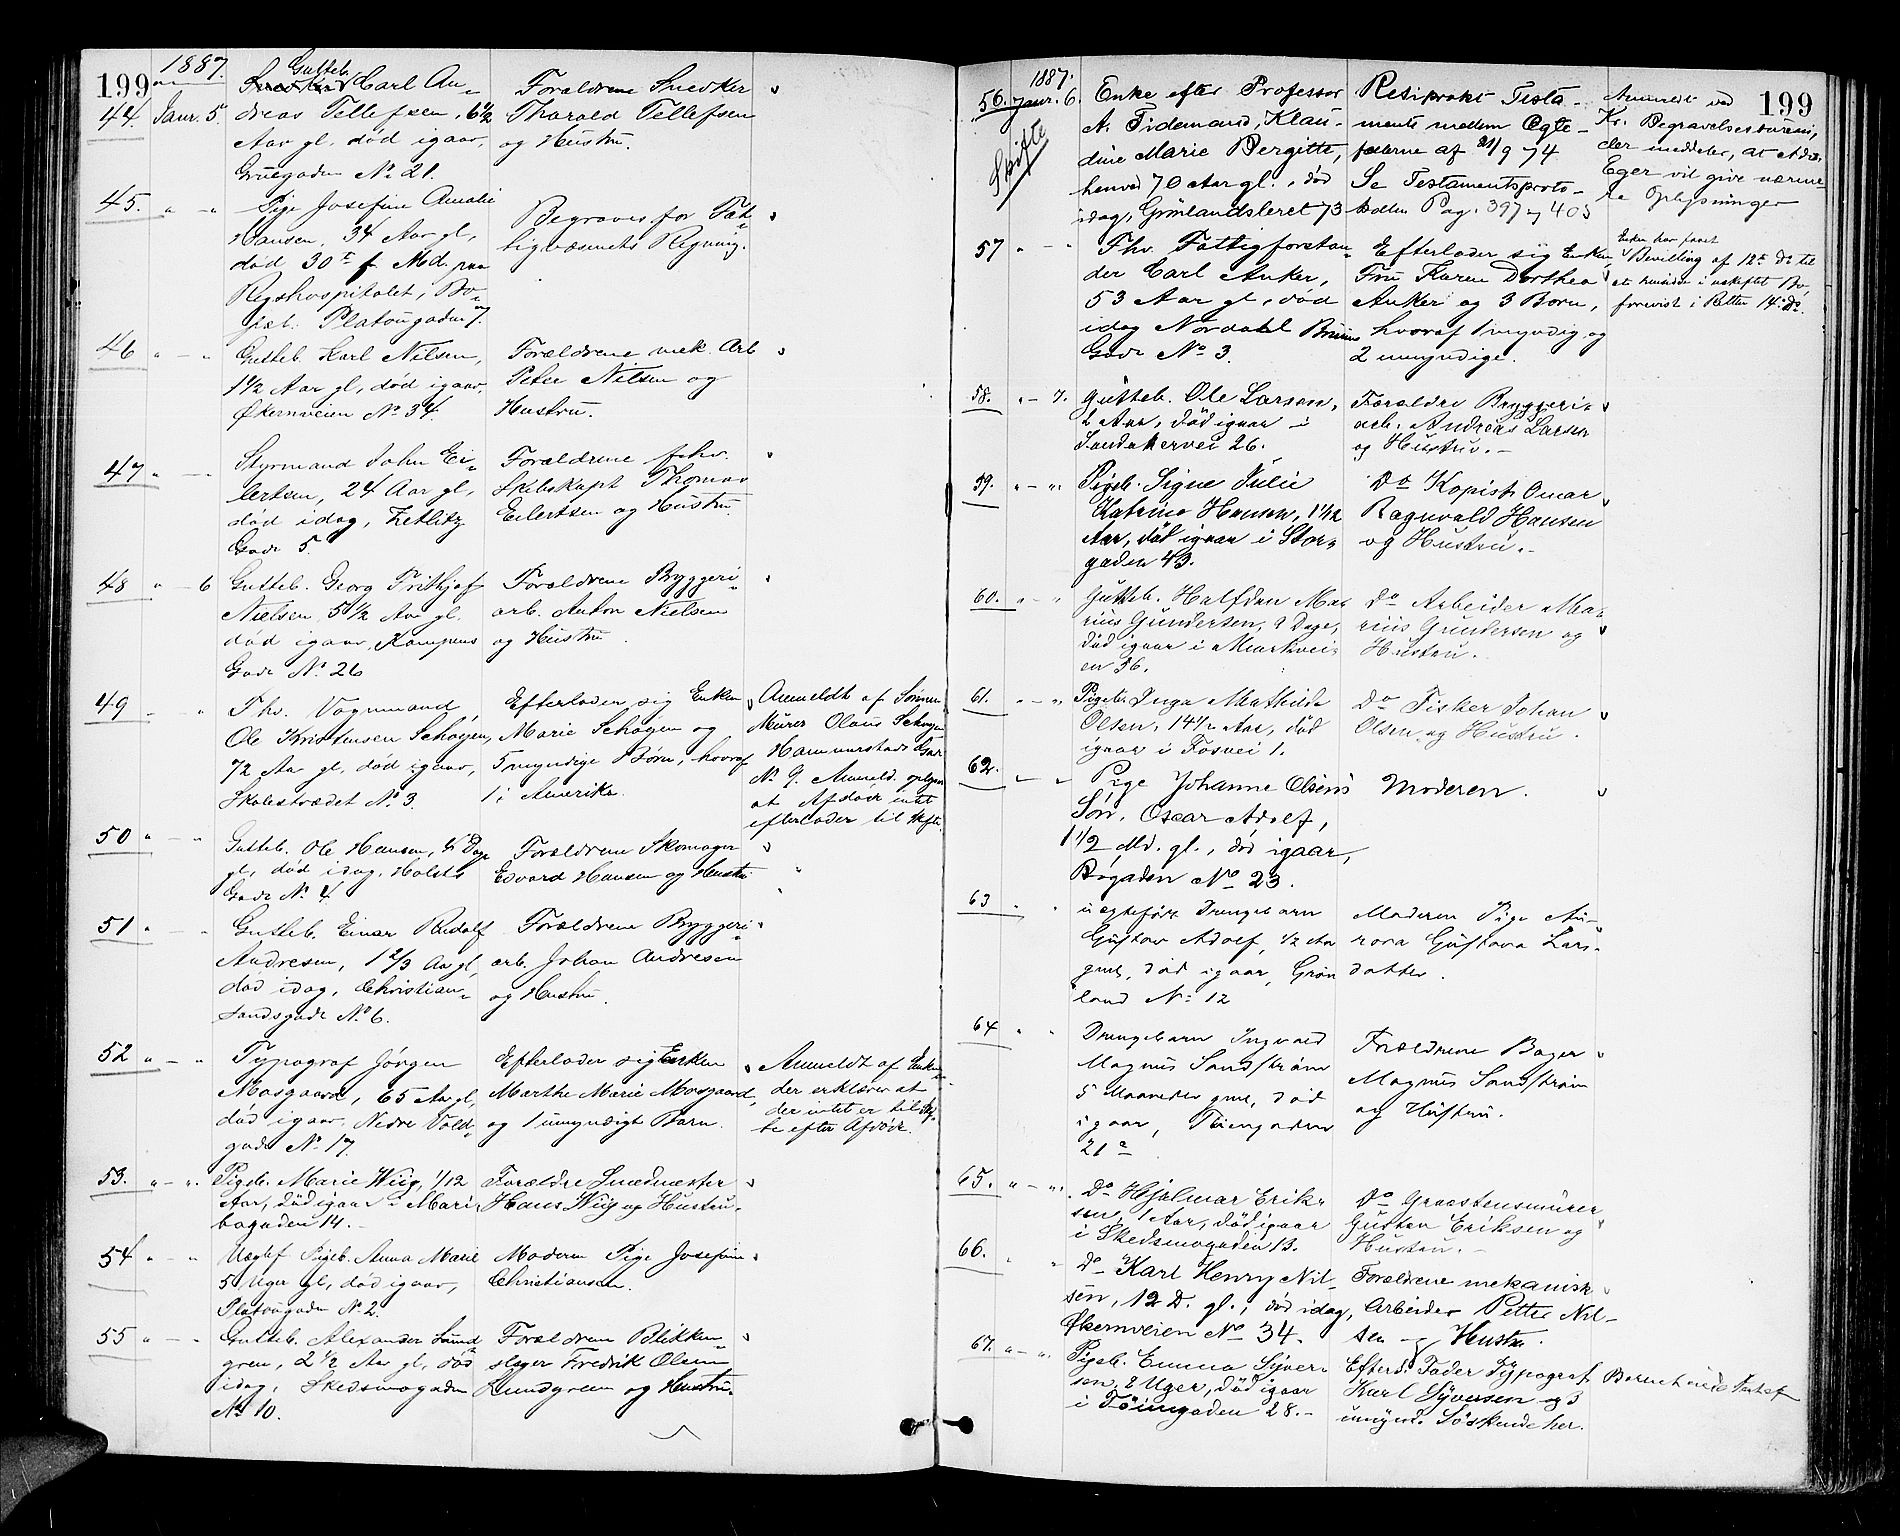 199
1887.
44. Janr. 5. Gutteb. Carl An-
dreas Tellefsen, 6½
Aar gl, død igaar,
Grüegaden No 21.
Forældrene Snedker
Tharald Tellefsen
og Hustru.
45. " - " Pige Josefine Amalie
Hansen, 34 Aar gl,
død 30te f. Md. paa
Rigshospitalet, Bo-
pæl: Platougaden 7.
Begraves for Fat-
tigvæsenets Regning.
46 " - " Gutteb. Karl Nilsen,
1½ Aar gl, død igaar,
Økernveien No 34.
Forældrene mek. Arb
Peter Nilsen og
Hustru.
47 " - " Styrmand John Ei-
lertsen, 24 Aar gl,
død idag, Zetlitz
Gade 5.
Forældrene fhv.
Skibskapt Thomas
Eilertsen og Hustru.
48 " - 6 Gutteb. Georg Frithjof
Nielsen, 5½ Aar gl.
død igaar, Kampens
Gade No 26
Forældrene Bryggeri-
arb. Anton Nielsen
og Hustru.
49 " - " Fhv. Vognmand
Ole Kristensen Schøyen,
72 Aar gl, død igaar,
Skolestrædet No 3.
Efterlader sig Enken
Marie Schøyen og
5 myndige Børn, hvoraf
1 i Amerika.
Anmeldt af Sønnen
Murer Olaus Schøyen
Hammerstads Gade
No 9. Anmeld. oplyser
at Afdøde intet
efterlader til Skifte.
50 " - " Gutteb. Ole Hansen, Dage
gl, død idag, Holsts
Gade No 4
Forældrene Skomager
Edvard Hansen og Hustru
51 " - " Gutteb. Einar Rudolf
Andresen, 1 2/3 Aar gl,
død idag, Christian-
sandsgade No 6.
Forældrene Bryggeri-
arb. Johan Andresen
og Hustru.
52 " - " Typograf Jörgen
Mosgaard, 65 Aar gl,
død igaar, Nedre Vold-
gade No 17.
Efterlader sig Enken
Marthe Marie Mosgaard,
og 1 umyndigt Barn.
Anmeldt af Enken
der erklærer at
der intet er til Skif-
te efter Afdøde.
53. " - ". Pigeb. Marie Wiig, 1/12
Aar, död igaar i Mari-
bogaden 14.
Forældre Smedmester
Hans Wiig og Hustru.
54 " - " Uægtef Pigeb. Anna Marie
5 Uger gl, død igaar,
Platougaden No 2.
Moderen Pige Josefine
Christiansen.
55 " - " Gutteb. Alexander Lund-
gren, 2½ Aar gl, død
idag, Skedsmogaden
No 10.
Forældrene Blikken-
slager Fredrik Olsen
Lundgreen og Hustru.
199
1887.
56. Janr. 6. Enke efter Professor
A. Tidemand, Klau-
dine Marie Bergitte,
henved 70 Aar gl., død
idag, Grønlandsleret 73
Skifte
Resiprokt Testa-
mente mellem Ægte-
fællerne af 21/9 74
Se Testamentsproto-
kollen Pag. 397 og 405
Anmeldt ved
Kr. Begravelsesbureau,
der meddeler, at
Eger vil give nærme-
re Oplysninger
57 " - " Fhv. Fattigforstan-
der Carl Anker,
53 Aar gl, død
idag Nordahl Bruns
Gade No 3.
Efterlader sig Enken
Fru Karen Dorthea
Anker og 3 Børn,
hvoraf 1 myndig og
2 umyndige.
Enken har faaet
Bevilling af 12te Ds til
at hensidde i uskiftet Bo,
forevist i Retten 14de Ds.
58. " - 7. Gutteb. Ole Larsen,
2 Aar, död igaar i
Sandakervei 26.
Forældre Bryggeri-
arb. Andreas Larsen
og Hustru.
59. " - ". Pigeb. Signe Julie
Katrine Hansen, 1 1/12
Aar, död igaar i Stor-
gaden 43.
Do Kopist Omar
Ragnvald Hansen
og Hustru.
60. " - " Gutteb. Halfdan Ma-
rius Gundersen, 9 Dage,
död igaar i Markvei-
en 56.
Do Arbeider Ma-
rius Gundersen og
Hustru.
61. " - " Pigeb. Inga Mathilde
Olsen, 1 4/12 Aar, död
igaar i Fosvei 1.
Do Fisker Johan
Olsen og Hustru.
62. " - " Pige Johanne Olsens
Søn, Oscar Adolf,
1 1/2 Md. gl., død igaar,
Bøgaden No 23.
Moderen.
63 " " uægteført Drengebarn
Gustav Adolf, 1/2 Aar
gml, død igaar, Grøn
land No 12
Moderen Pige Au-
rora Gustava Lars-
datter.
64 " " Drengebarn Ingvald
Magnus Sandstrøm
5 Maaneder gml, død
igaar,
21a
Forældrene Bager
Magnus Sandstrøm
og Hustru.
65. " - ". Do Hjalmar Erik-
sen, 1 Aar, död igaar
i Skedsmogaden 13.
Do Graastensmurer
Gustav Eriksen og
Hustru.
66. " " Do Karl Henry Nil-
sen, 12 D. gl., død idag,
Økernveien No 34.
Forældrene mekanisk
Arbeider Petter Nil-
sen og Hustru.
67. " - ". Pigeb. Emma Syver-
sen, 2 Uger, död igaar
i Töiengaden 28.
Efterl. Fader Typograf
Karl Syversen og 3
umynd. Söskende her.